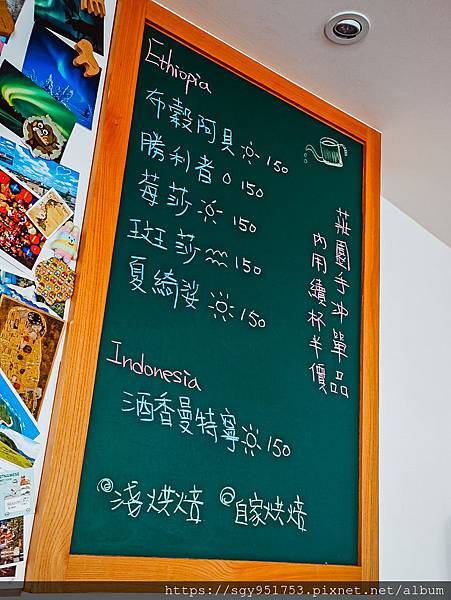 Ethiopia
布穀阿貝 150
勝利者 150
莓莎 150
斑莎 150
夏綺娑 150
Indonesia
酒香曼特寧 150
淺烘焙 自家烘焙
莊園手沖單品
內用續杯半價
https://sgy951753.pixnet.net/album